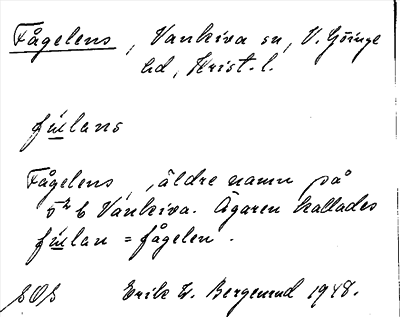 Fågelens, Vankiva sn, V. Göinge
hd, Krist. l.
fúlans
Fågelens, äldre namn på
5² b Vankiva. Ägaren kallades
fúlan = fågelen.
SOS Erik W. Bergemnd 1948.